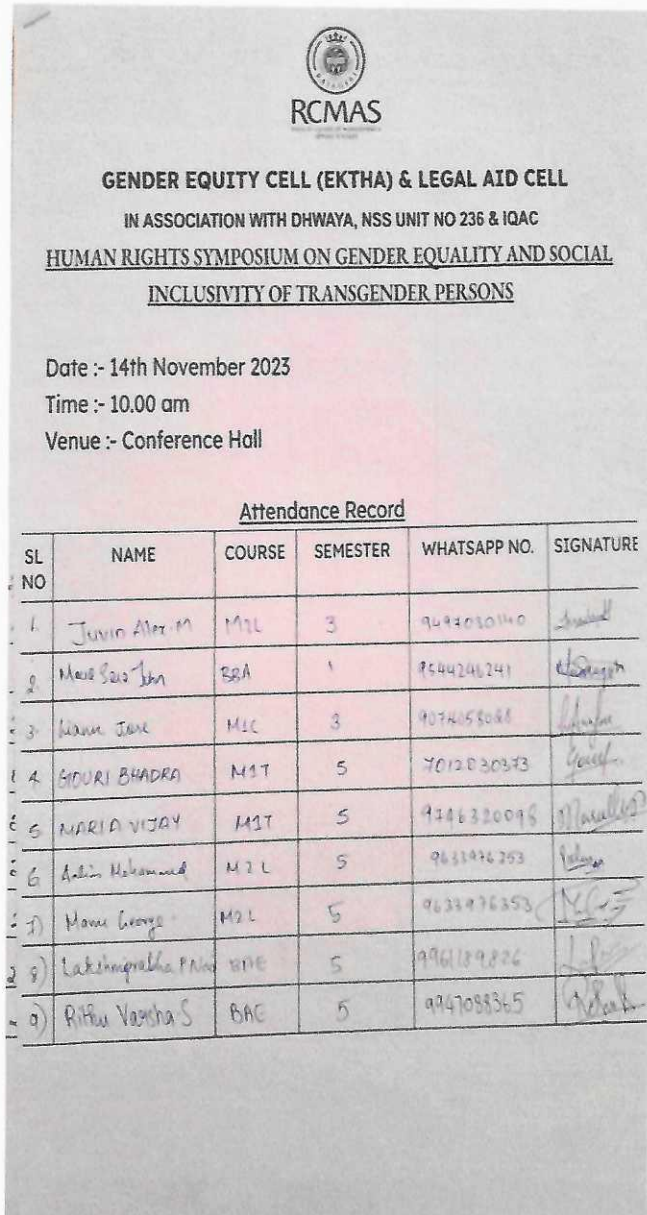 RCMAS
GENDER EQUITY CELL (EKTHA) & LEGAL AID CELL
IN ASSOCIATION WITH DHWAYA, NSS UNIT NO 236 & IQAC
HUMAN RIGHTS SYMPOSIUM ON GENDER EQUALITY AND SOCIAL
INCLUSIVITY OF TRANSGENDER PERSONS
Date :- 14th November 2023
Time :- 10.00 am
Venue :- Conference Hall
Attendance Record
SL NO NAME COURSE SEMESTER WHATSAPP NO. SIGNATURE
1. Juvin Alex M M2L 3 9497030140
2. John BBA 1 9544246241
3. Jose 3
4. GOURI BHADRA M1T 5 7012030373
5. MARIA VIJAY M1T 5 9746320098
6 Mohammed M2L 5 9633976353
7) Manu George M2L 5 9633976353
8) Lakshmiprabha P Nair BAE 5 9961189826
9) Rithu Varsha S BAE 5 9947088365